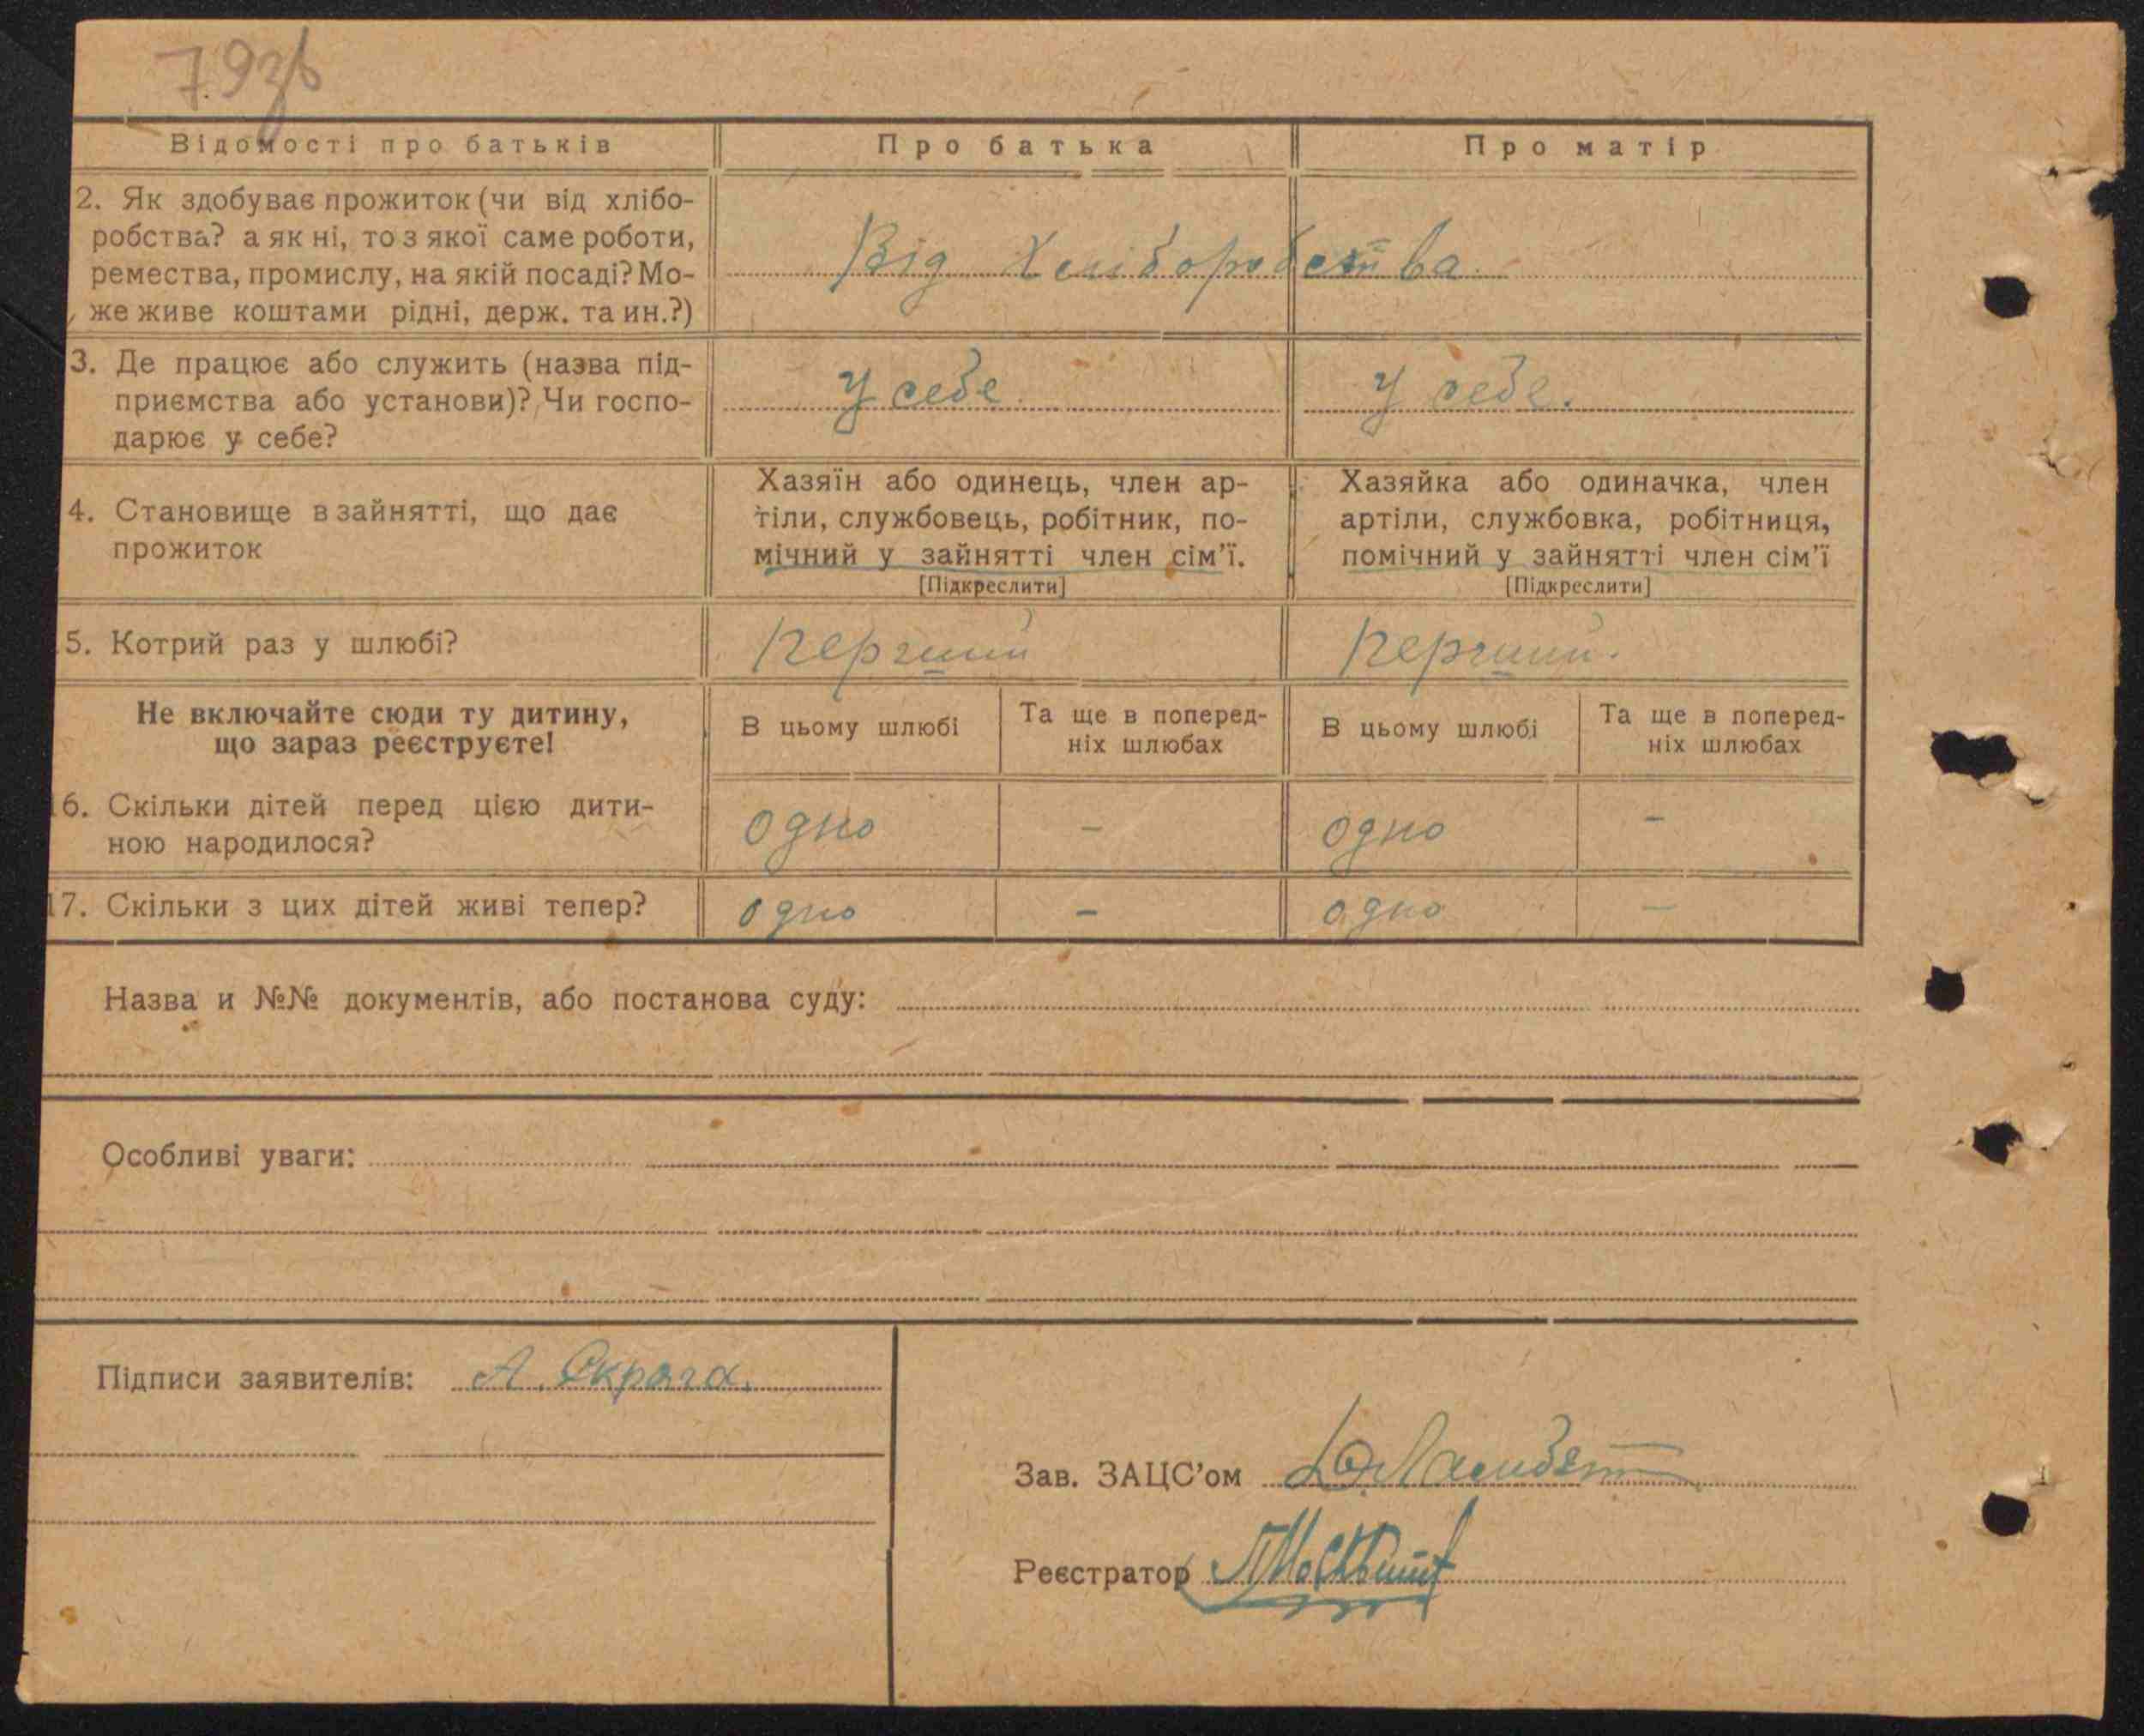 79зв
Відомості про батьків
Про батька
Про матір
2. Як здобуває прожиток (чи від хлібо-
робства? а як ні, то з якої саме роботи,
ремества, промислу, на якій посаді? Мо-
же живе коштами рідні, держ. та ин.?)
Від Хліборобства.
3. Де працює або служить (назва під-
приємства або установи)? Чи госпо-
дарює у себе?
У себе
У себе.
4. Становище в зайнятті, що дає
прожиток
Хазяїн або одинець, член ар-
тіли, службовець, робітник, по-
мічний у зайнятті член сім'ї.
[Підкреслити]
Хазяйка або одиначка, член
артіли, службовка, робітниця,
помічний у зайнятті член сім'ї
[Підкреслити]
5. Котрий раз у шлюбі?
Перший
Перший.
Не включайте сюди ту дитину,
що зараз реєструєте!
В цьому шлюбі
Та ще в поперед-
ніх шлюбах
В цьому шлюбі
Та ще в поперед-
ніх шлюбах
16. Скільки дітей перед цією дити-
ною народилося?
одно
–
одно
–
17. Скільки з цих дітей живі тепер?
одно
–
одно
–
Назва и №№ документів, або постанова суду:
Особливі уваги:
Підписи заявителів: А. Скряга.
Зав. ЗАЦС'ом
Реєстратор